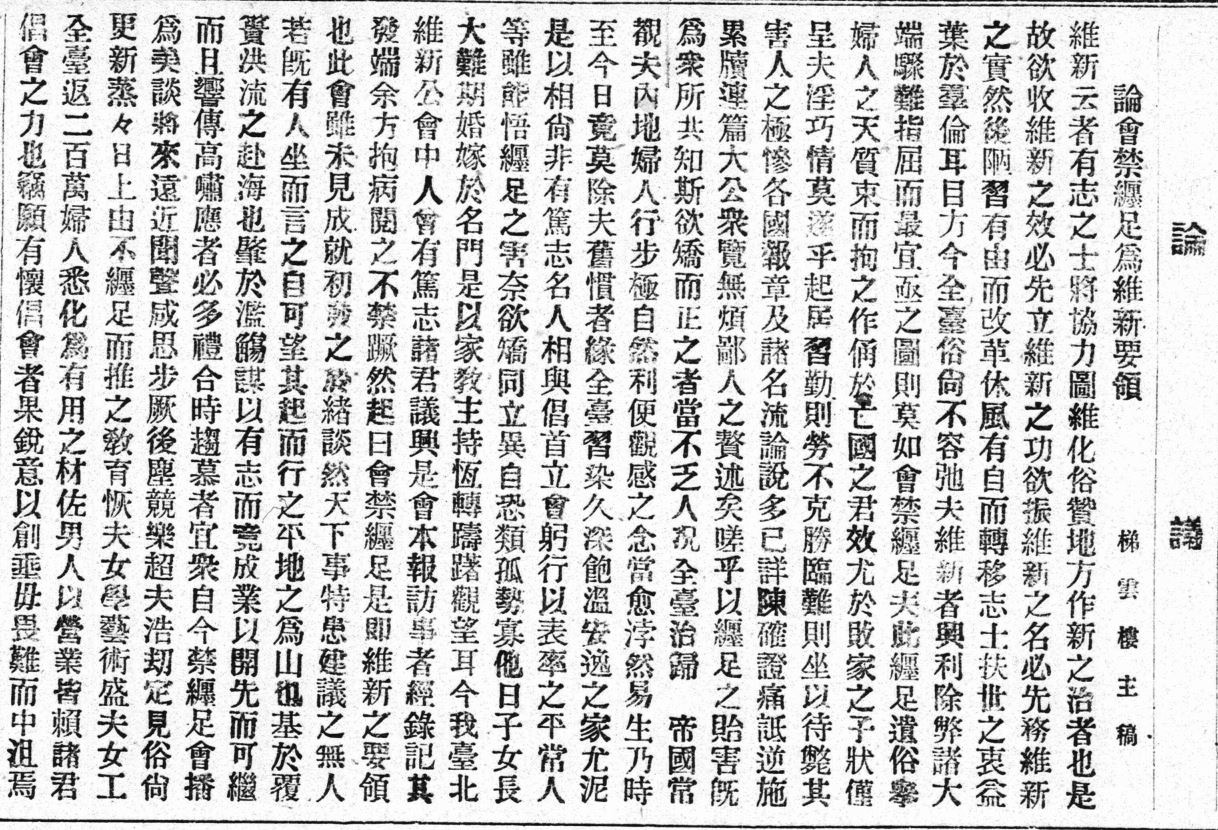 論議
論會禁纏足爲維新要領
梯雲樓主稿
維新云者有志之士將協力圖維化俗贊地方作新之治者也是
故欲收維新之效必先立維新之功欲振維新之名必先務維新
之實然後陋習有由而改革休風有自而轉移志士扶世之衷益
葉於羣倫耳目方今全臺俗尙不容弛夫維新者興利除弊諸大
端驟難指屈而最宜亟之圖則莫如會禁纏足夫此纏足遺俗擧
婦人之天質束而拘之作俑於亡國之君效尤於敗家之子狀僅
呈夫淫巧情莫遂乎起居習勤則勞不克勝臨難則坐以待斃其
害人之極慘各國報章及諸名流論說多已詳陳確證痛詆逆施
累牘連篇大公衆覽無煩鄙人之贅述矣嗟乎以纏足之貽害旣
爲衆所共知斯欲矯而正之者當不乏人況全臺治歸　帝國常
觀夫內地婦人行步極自然利便觀感之念當愈浡然易生乃時
至今日竟莫除夫舊慣者緣全臺習染久深飽溫安逸之家尤泥
是以相尙非有篤志名人相與倡首立會躬行以表率之平常人
等雖能悟纏足之害奈欲矯同立異自恐類孤勢寡他日子女長
大難期婚嫁於名門是以家敎主持恆轉躊躇觀望耳今我臺北
維新公會中人會有篤志諸君議興是會本報訪事者經錄記其
發端余方抱病閱之不禁蹶然起曰會禁纏足是卽維新之要領
也此會雖未見成就初發之於緒談然天下事特患建議之無人
若旣有人坐而言之自可望其起而行之平地之爲山也基於覆
簣洪流之赴海也肇於濫觴謀以有志而竟成業以開先而可繼
而且響傳高嘯應者必多禮合時趨慕者宜衆自今禁纏足會播
爲美談將來遠近聞聲咸思步厥後塵競樂超夫浩劫定見俗尙
更新蒸々日上由不纏足而推之敎育恢夫女學藝術盛夫女工
全臺返二百萬婦人悉化爲有用之材佐男人以營業皆賴諸君
倡會之力也竊願有懷倡會者果銳意以創垂毋畏難而中沮焉